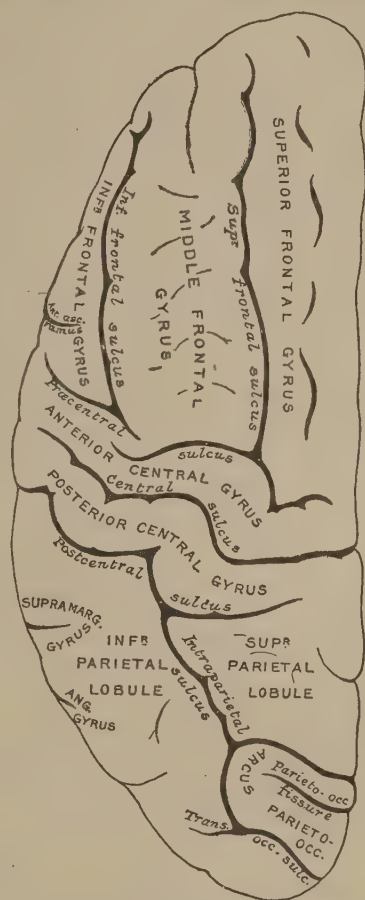 SUPERIOR FRONTAL GYRUS
Supr frontal sulcus
MIDDLE FRONTAL
GYRUS
Inf. frontal sulcus
INFR FRONTAL
GYRUS
asc.
ramus
Præcentral
sulcus
ANTERIOR CENTRAL GYRUS
Central sulcus
POSTERIOR CENTRAL GYRUS
Postcentral sulcus
SUPRAMARG.
GYRUS
INFR
PARIETAL
LOBULE
ANG.
GYRUS
Intraparietal
sulcus
SUPR
PARIETAL
LOBULE
ARCUS
PARIETO-
OCC.
Parieto. occ
fissure
Trans.
occ. sulc.